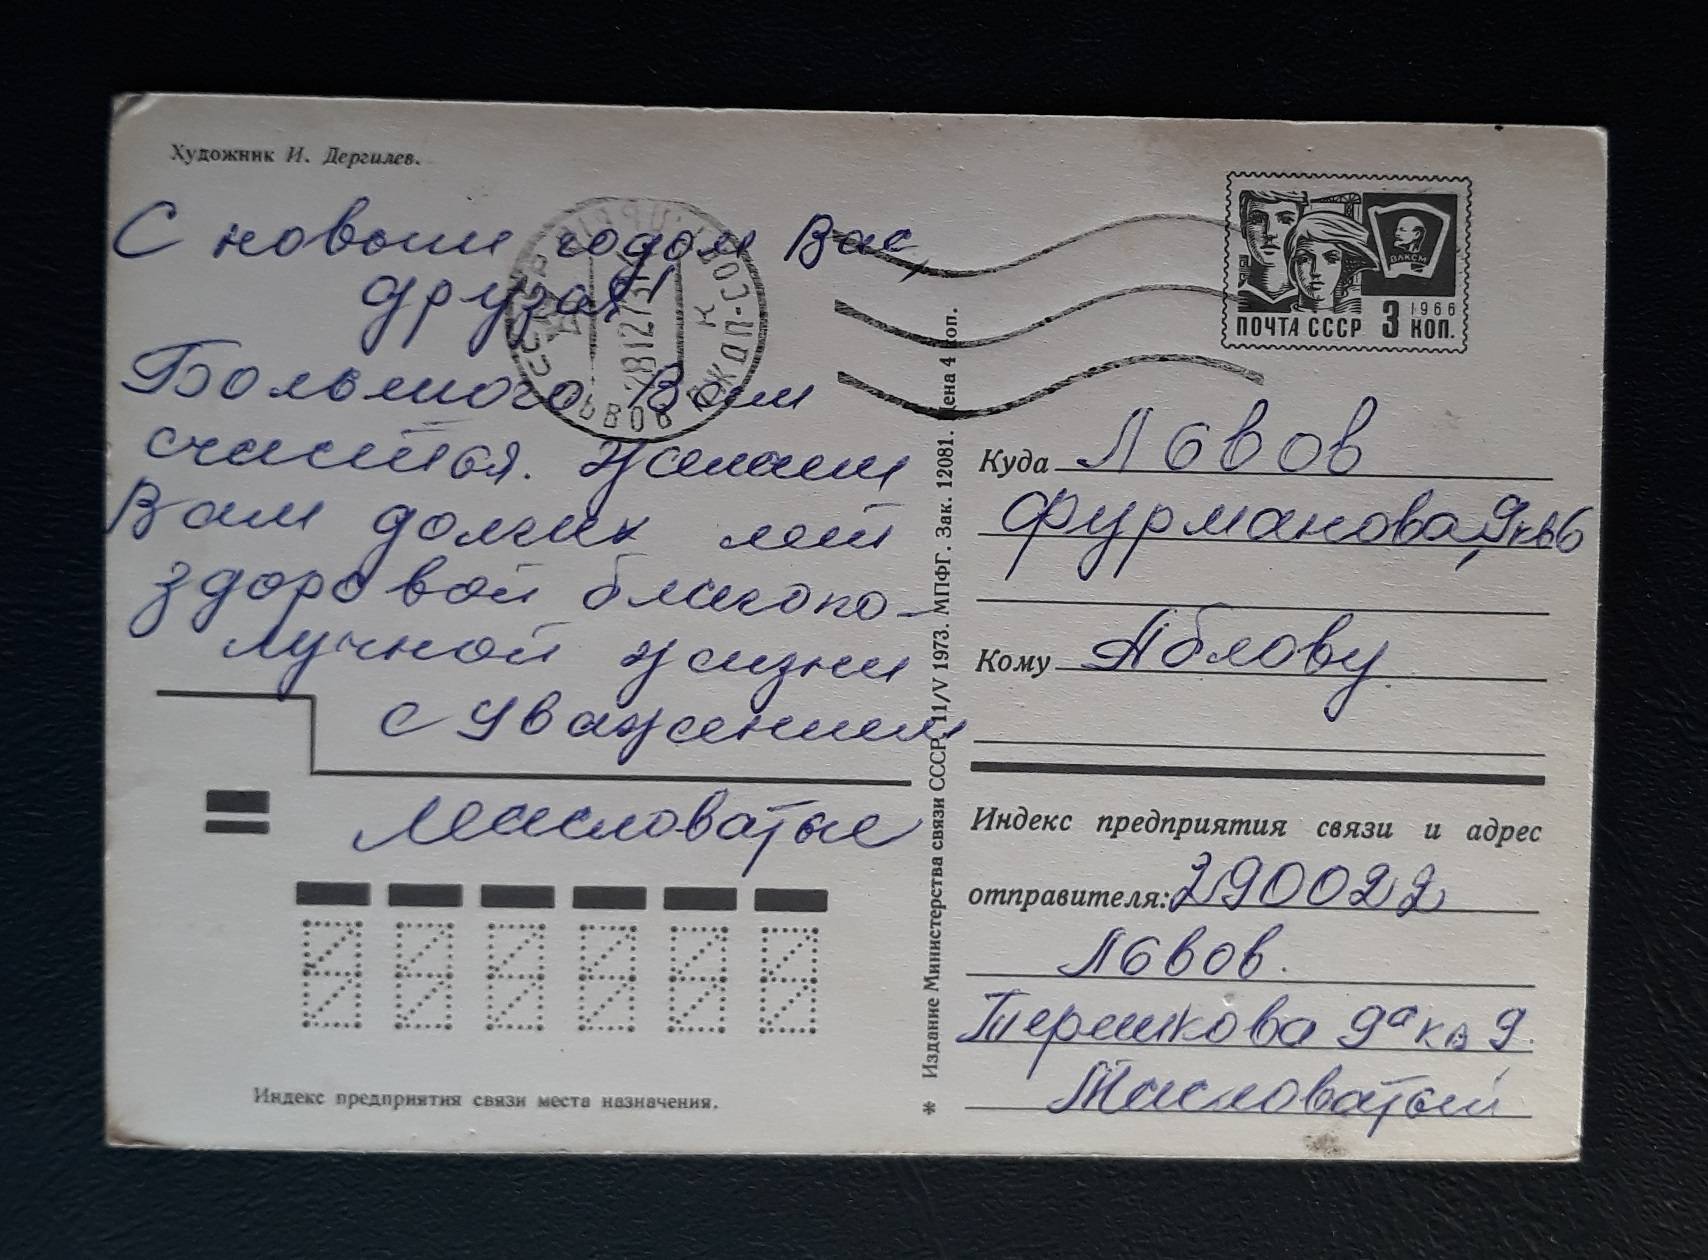 Художник И. Дергилев.
С новым годом Вас,
друзья!
Большого Вам
счастья. Желаем
Вам долгих лет
здоровой благопо-
лучной жизни
с уважением
Масловатые
Индекс предприятия связи места назначения.
* Издание Министерства связи СССР. 11/V 1973. МПФГ. Зак. 12081. Цена 4 коп.
ВЛКСМ
1966
ПОЧТА СССР 3 КОП.
ЛЬВОВ
28127
Куда Львов
Фурманова, 9 кв 6
Кому Яблову
Индекс предприятия связи и адрес
отправителя: 290022
Львов.
Терешкова 9а кв 9.
Масловатый